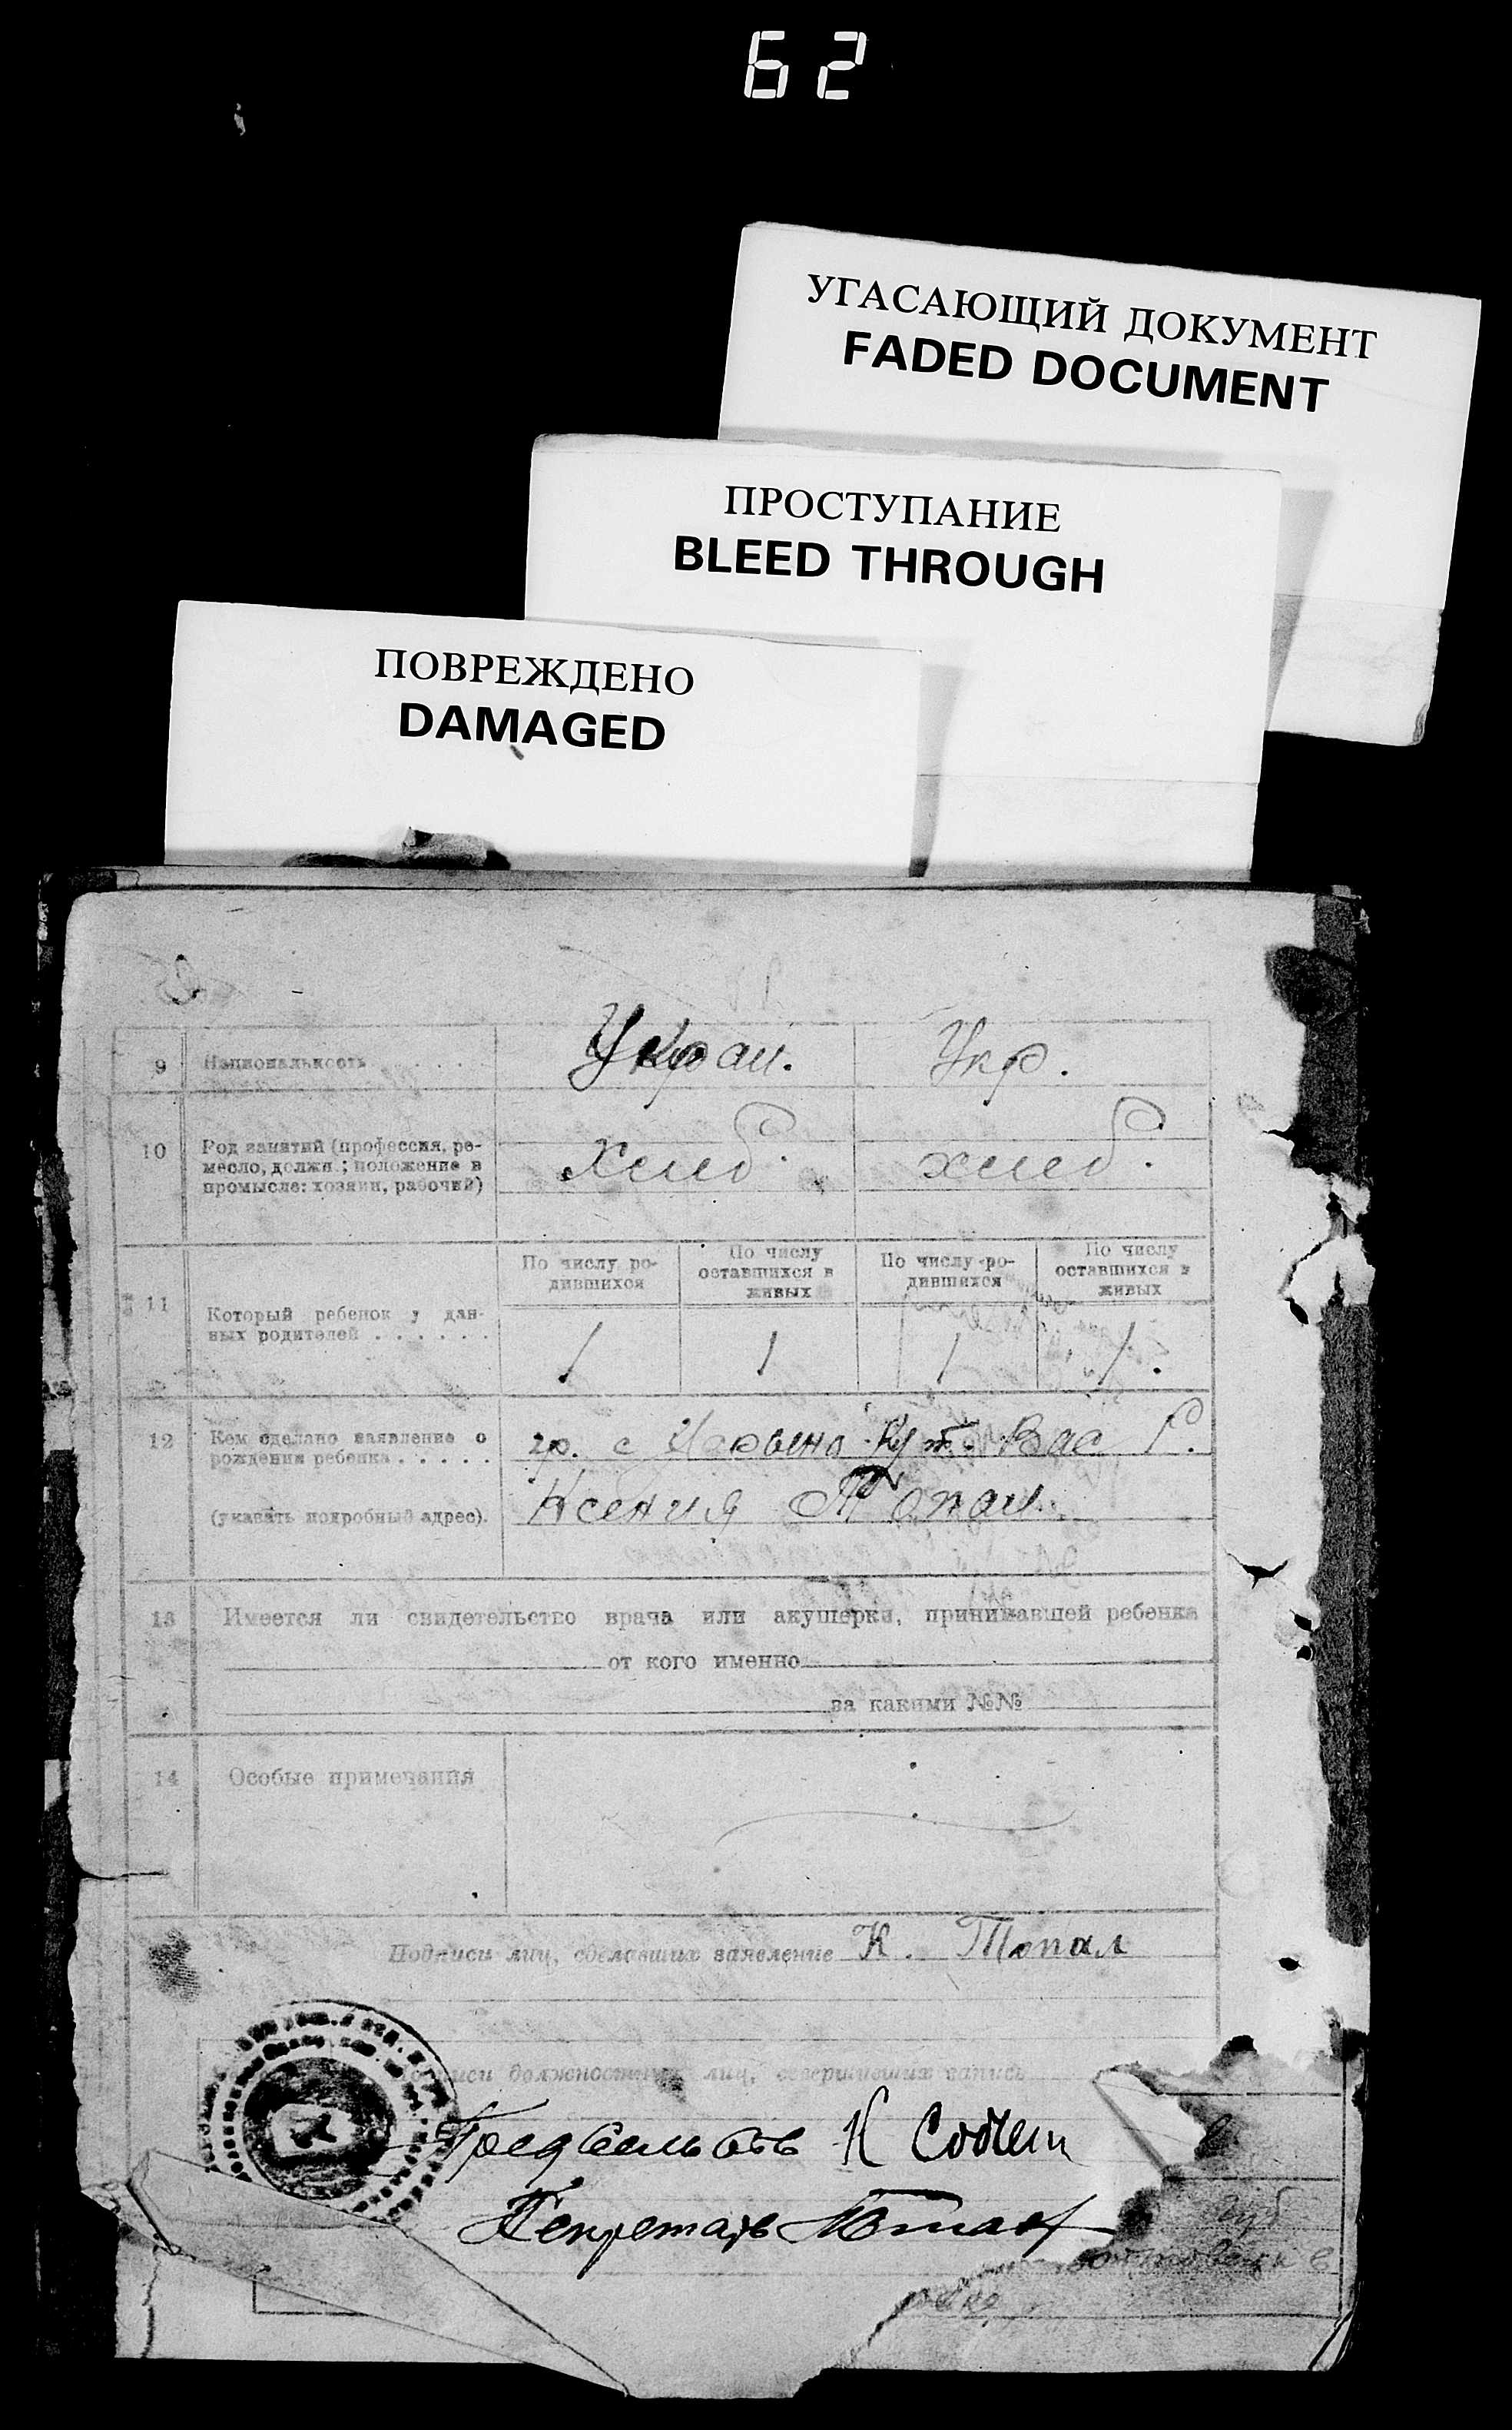 62
УГАСАЮЩИЙ ДОКУМЕНТ
FADED DOCUMENT
ПРОСТУПАНИЕ
BLEED THROUGH
ПОВРЕЖДЕНО
DAMAGED
9 Национальность Украи. Укр.
10 Род занятий (профессия, ре-
месло, должн.; положение в
промысле: хозяин, рабочий)
хлеб. хлеб.
11 Который ребенок у дан-
ных родителей
По числу ро-
дившихся
По числу
оставшихся в
живых
По числу ро-
дившихся
По числу
оставшихся в
живых
1 1 1 1.
12 Кем сделано заявление о
рождении ребенка
(указать подробный адрес).
гр. с Вас Р.
Ксения Топал.
13 Имеется ли свидетельство врача или акушерки, принимавшей ребенка
от кого именно
за какими №№
14 Особые примечания
Подписи лиц, сделавших заявление К. Топал
должностных лиц, совершивших запись
Пред К
Секретарь